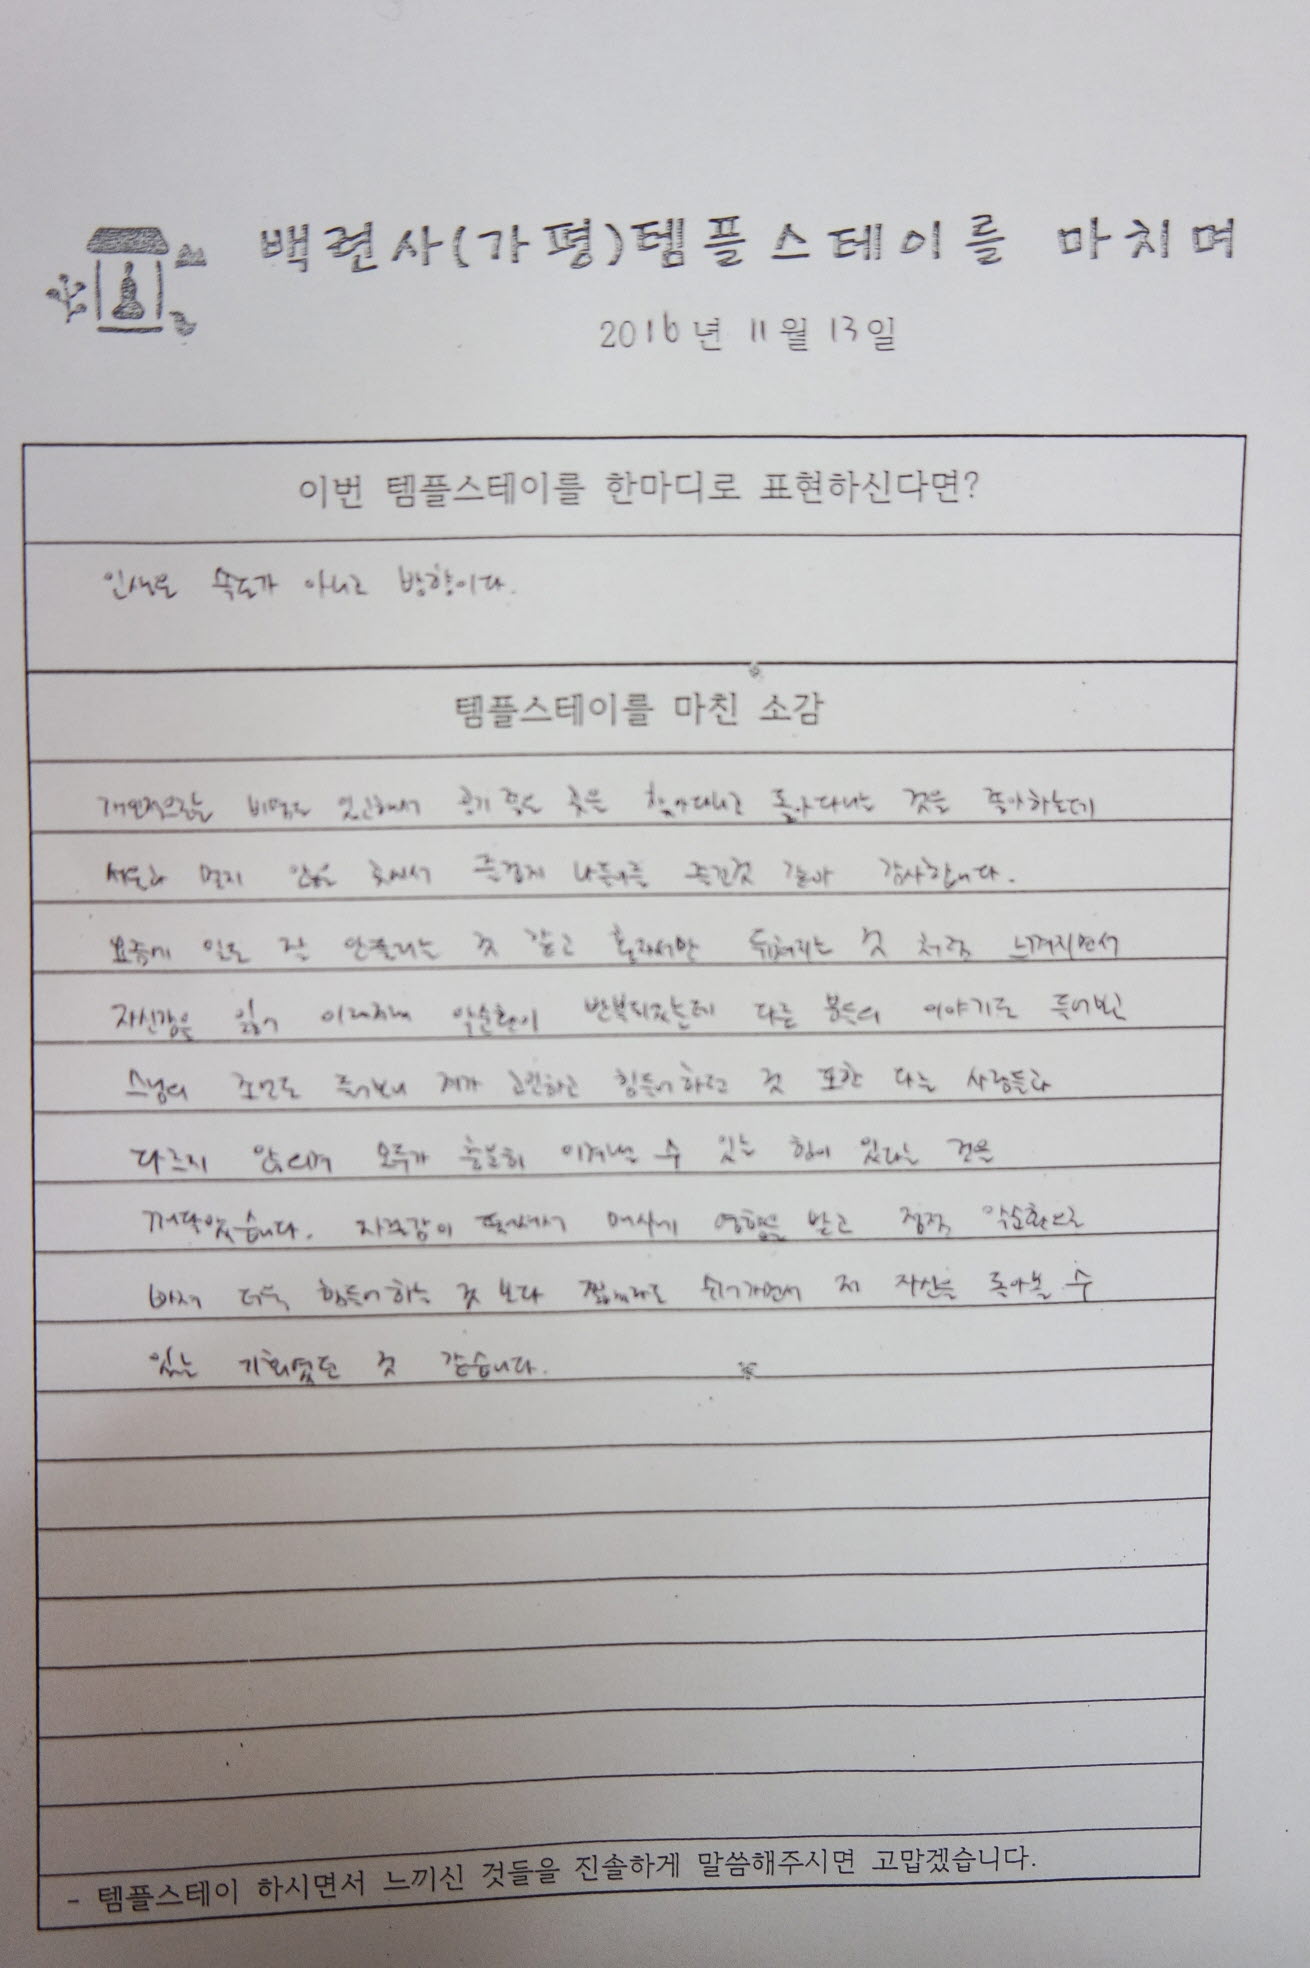 백련사(가평)템플스테이를 마치며
2016년 11월 13일
이번 템플스테이를 한마디로 표현하신다면?
인생은 속도가 아니고 방향이다.
템플스테이를 마친 소감
개인적으로는 공기 좋은 곳을 찾아다니고 돌아다니는 것을 좋아하는데
서울과 멀지 않은 곳에서 즐겁게 나들이를 즐긴것 같아 감사합니다.
요즘에 일도 잘 안풀리는 것 같고 혼자서만 뒤쳐지는 것 처럼 느껴지면서
자신감을 잃어 악순환이 반복되었는데 다른 분들의 이야기도 들어보고
스님의 조언도 들어보니 제가 고민하고 힘들어하는 것 또한 다른 사람들과
다르지 않으며 모두가 충분히 이겨낼 수 있는 힘이 있다는 것을
깨달았습니다. 자존감이 떨어져서 매사에 영향을 받고 점점 악순환으로
빠져 더욱 힘들어하는 것 보다 짧게라도 쉬어가면서 저 자신을 돌아볼 수
있는 기회였던 것 같습니다.
- 템플스테이 하시면서 느끼신 것들을 진솔하게 말씀해주시면 고맙겠습니다.